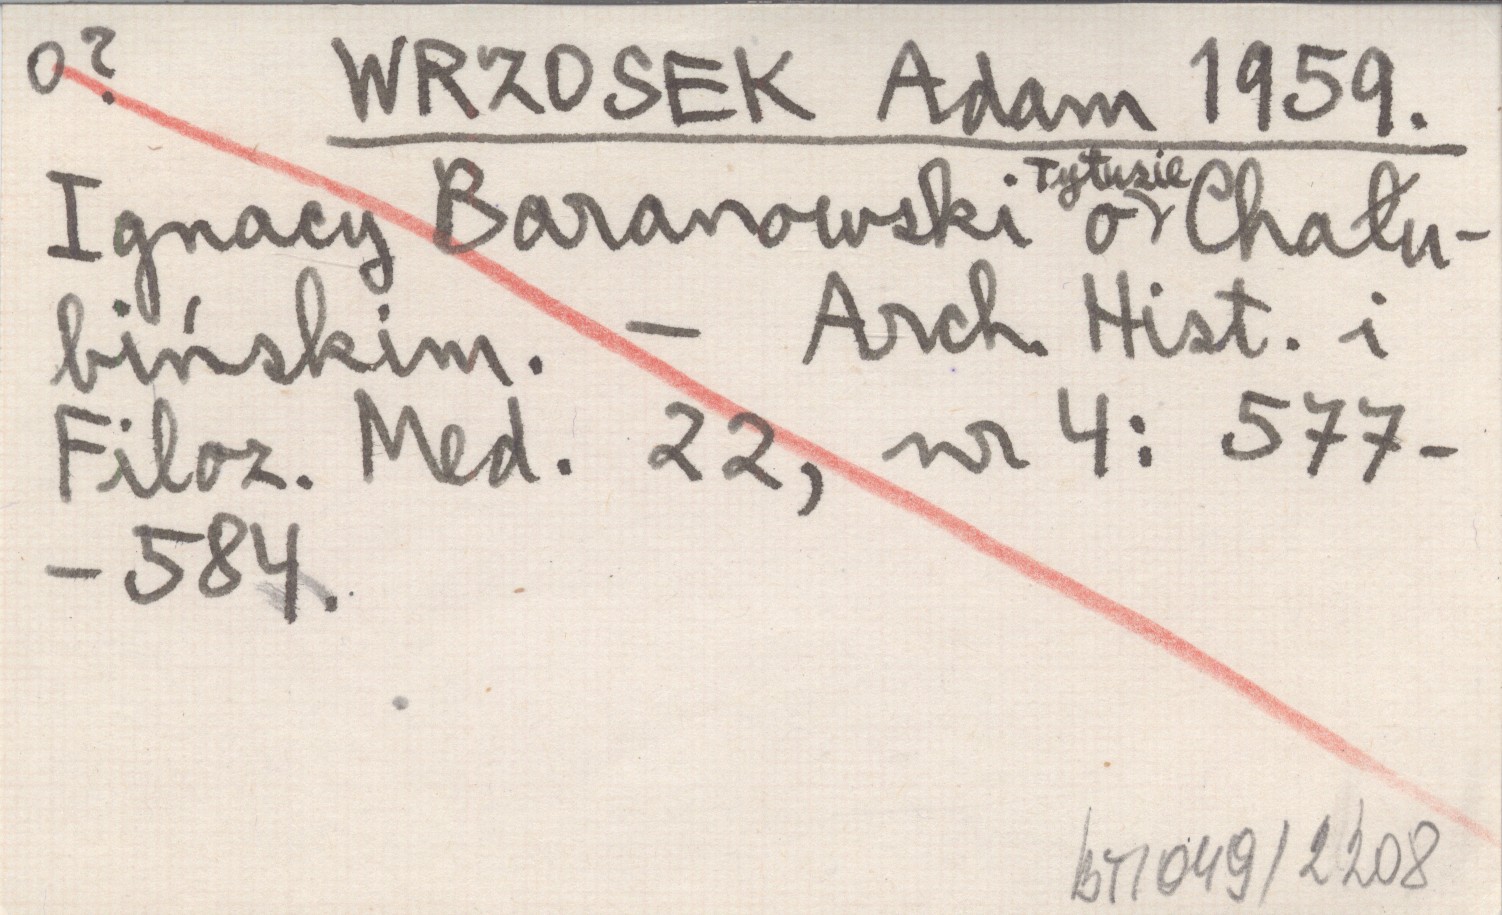 o?
WRZOSEK Adam 1959.
Ignacy Baranowski o Tytusie Chału-
bińskim. — Arch. Hist. i
Filoz. Med. 22, nr 4: 577-
-584.
BT/049/2208